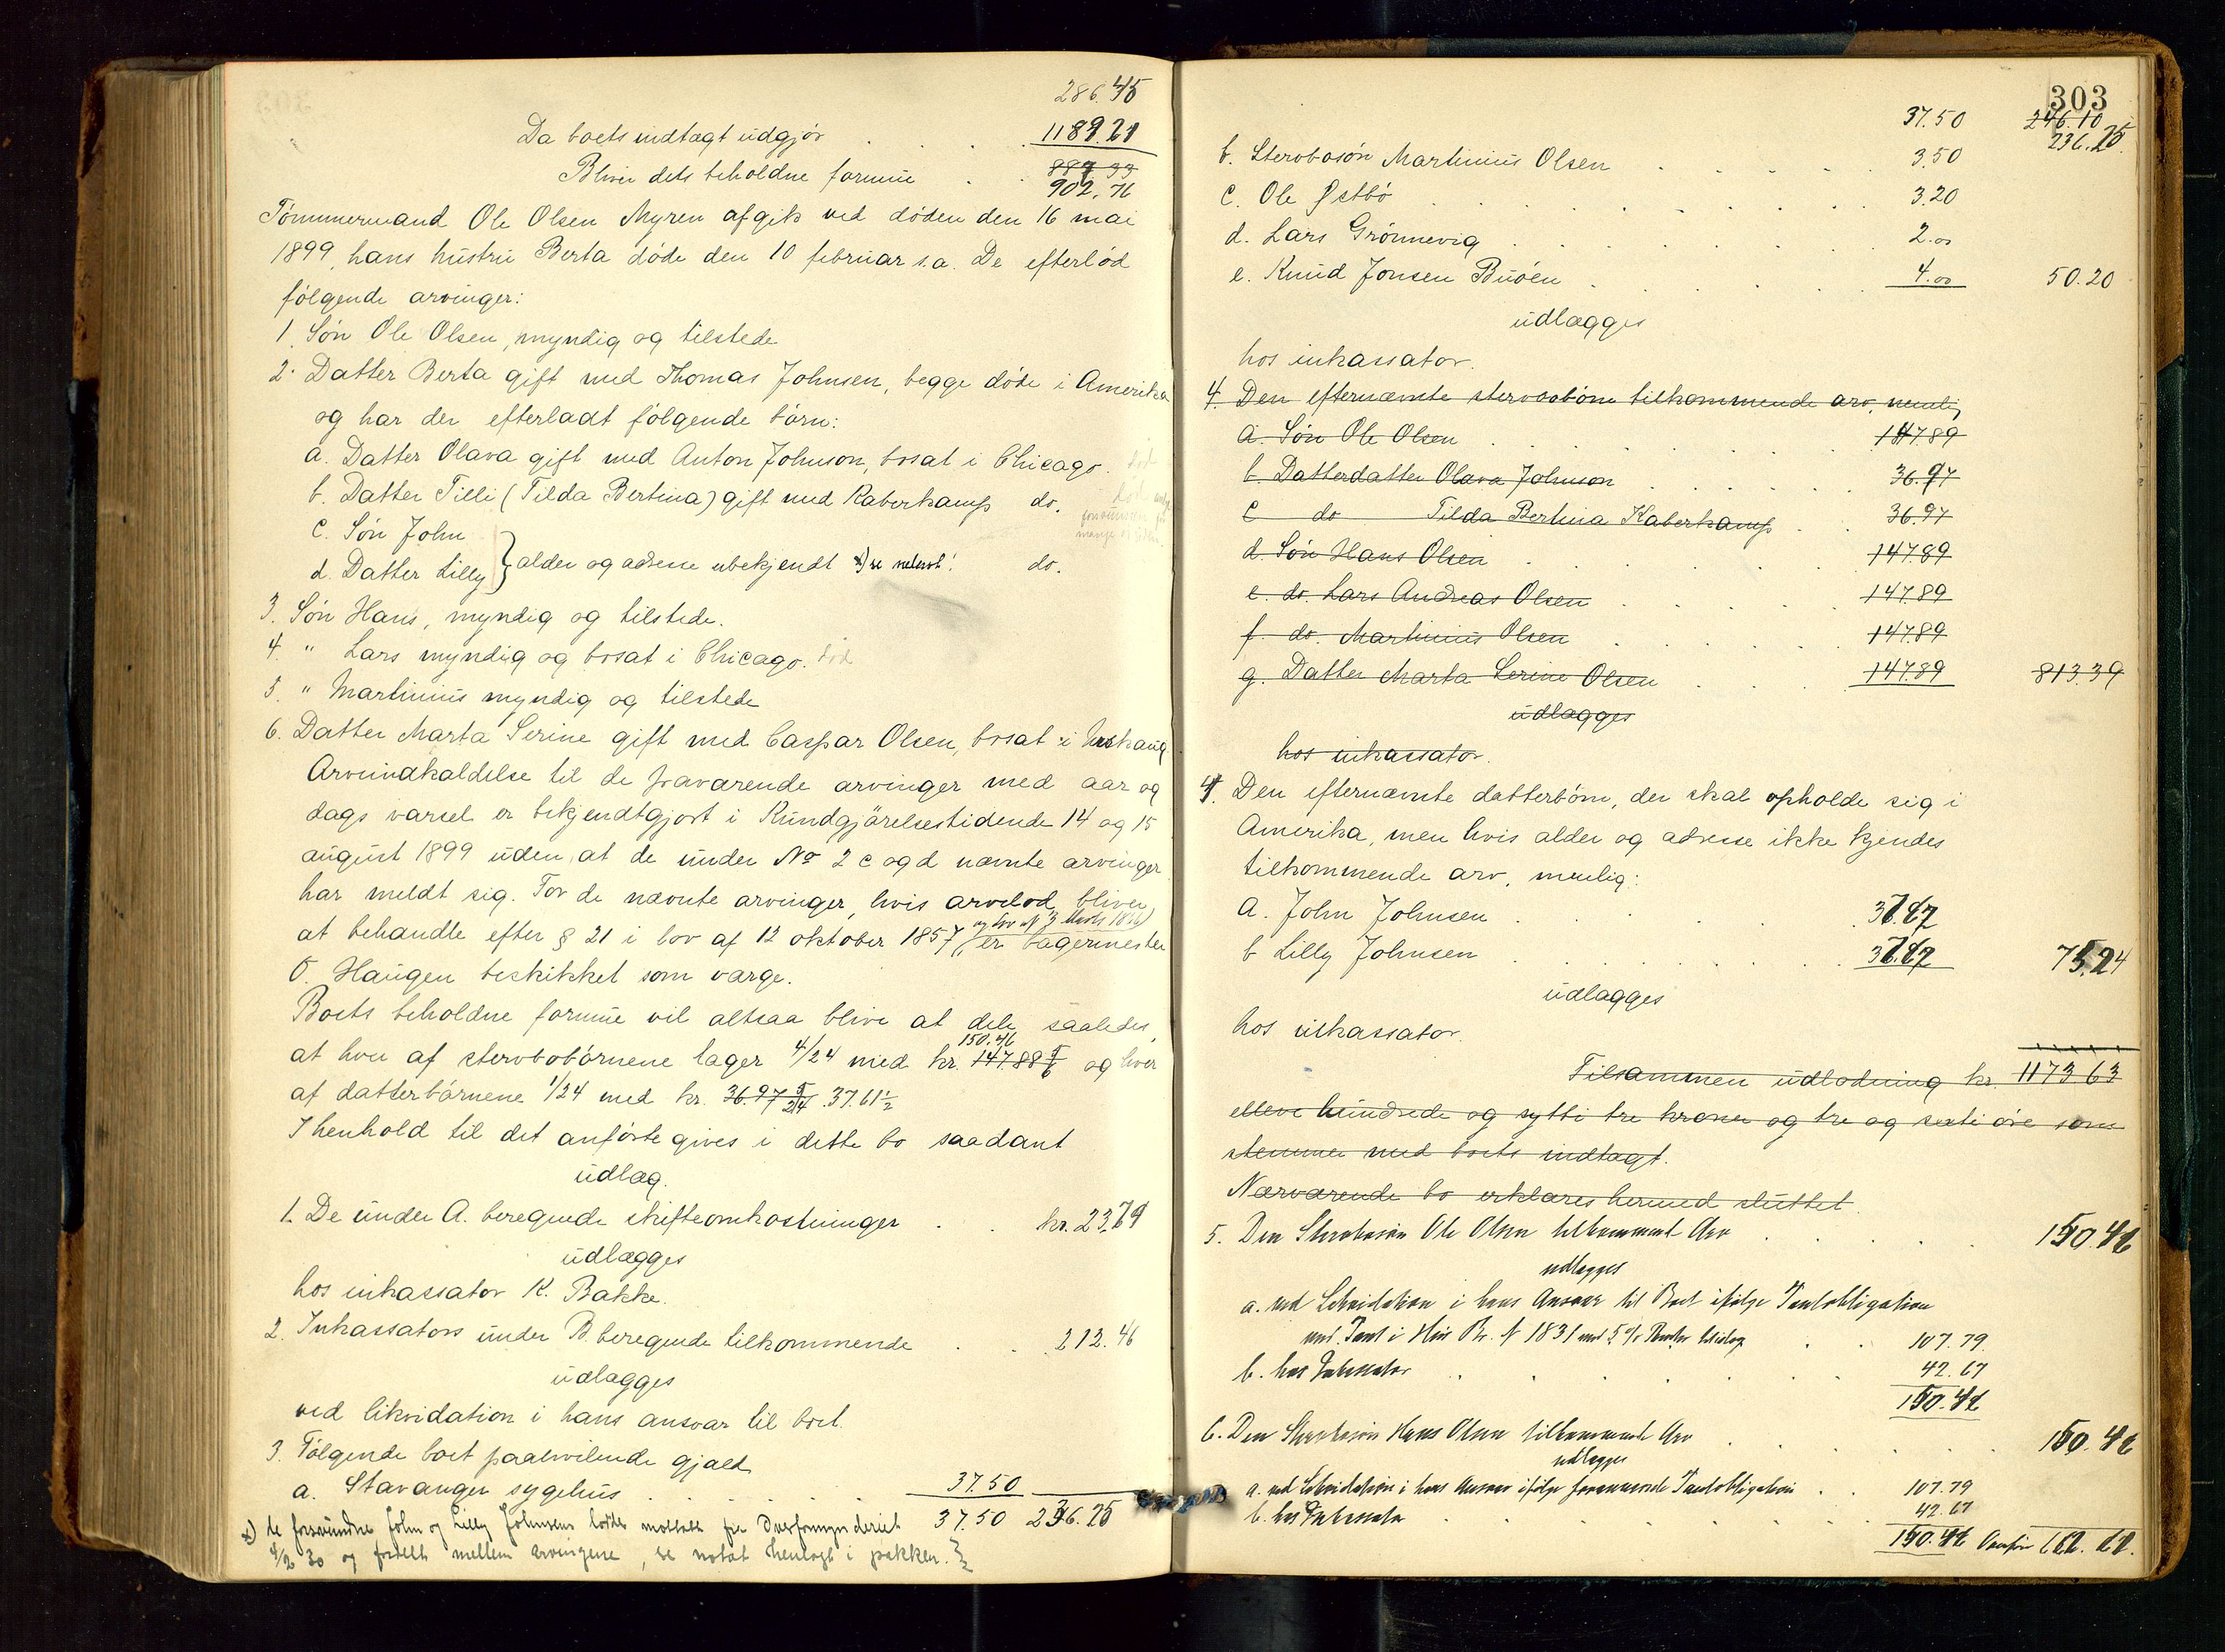 286.45
Da boets indtægt udgjør . . . . 1189.21
Bliver dets beholdne formue . . 887 33
902.76
Tömmermand Ole Olsen Myren afgik ved döden den 16 mai
1899, hans hustru Berta døde den 10 februar s.a. De efterlod
fölgende arvinger:
1. Sön Ole Olsen, myndig og tilstede
2. Datter Berta gift med Thomas Johnsen, begge döde i Amerika
og har der efterladt fölgende börn:
a. Datter Olava gift med Anton Johnson, bosat i Chicago. död
b. Datter Tilli (Tilda Bertina) gift med Kaberkamp do. död
c. Sön John
d. Datter Lilly } alder og adresse ubekjendt *) se nederst! do.
3. Sön Hans, myndig og tilstede.
4. " Lars myndig og bosat i Chicago. död
5. " Martinius myndig og tilstede
6. Datter Marta Serine gift med Caspar Olsen, bosat i
Arveindkaldelse til de fraværende arvinger med aar og
dags varsel er bekjendtgjort i Kundgjörelsestidende 14 og 15
august 1899 uden, at de under No 2 c og d nævnte arvinger
har meldt sig. For de nævnte arvinger, hvis arvelod bliver
at behandle efter § 21 i lov af 12 oktober 1857, er bagermester
O. Haugen beskikket som værge.
Boets beholdne formue vil altsaa blive at dele saaledes,
150.46
at hver af stervbobörnene tager 4/24 med kr. 147.88 5/6 og hver
af datterbörnene 1/24 med kr. 36.97 5/24 37.61½
I henhold til det anförte gives i dette bo saadant
udlæg.
1. De under A. beregnede skifteomkostninger . . kr. 23.79
udlægges
hos inkassator K. Bakke.
2. Inkassators under B. beregnede tilkommende . . 212.46
udlægges
ved likvidation i hans ansvar til boet.
3. Fölgende boet paahvilende gjæld
a. Stavanger sygehus . . . . . 37.50
37.50 236.25
*) de forsvundne John og Lilly Johnsens lodder mottatt fra Overformynderiet
4/2 30 og fordelt mellem arvingene, se notat henlagt i pakken.
303
37.50 246.10
236.25
b. Stervbosön Martinius Olsen . . . . . 3.50
c. Ole Østbö . . . . . . . 3.20
d. Lars Grönnevig . . . . . . 2.00
e. Knud Jonsen Buöen . . . . . 4.00 50.20
udlægges
hos inkassator.
4. Den efternævnte stervbobörn tilkommende arv, nemlig
a. Sön Ole Olsen . . . . . 147.89
b. Datterdatter Olava Johnson . . . . 36.97
c do Tilda Bertina Kaberkamp . . 36.97
d. Sön Hans Olsen . . . . . 147.89
e. do. Lars Andreas Olsen . . . . 147.89
f. do. Martinius Olsen . . . . 147.89
g. Datter Marta Serine Olsen . . . 147.89 813.39
udlægges
hos inkassator.
4. Den efternævnte datterbörn, der skal opholde sig i
Amerika, men hvis alder og adresse ikke kjendes
tilkommende arv, nemlig:
a. John Johnsen . . . . . 37.62
b Lilly Johnsen . . . . . . 37.62 75.24
udlægges
hos inkassator.
Tilsammen udlodning kr. 1173 63
elleve hundrede og sytti tre kroner og tre og seksti öre som
stemmer med boets indtægt.
Nærværende bo erklæres hermed sluttet.
5. Den Stervbosön Ole Olsen tilkommende Arv . . . . . 150.46
udlægges
a. ved Likvidation i hans Ansvar til Boet ifölge Panteobligation
med Pant i Hus Br. N 1831 med 5% Renter . . 107.79
b. hos Inkassator . . . . . . . 42.67
150.46
6. Den Stervbosön Hans Olsen tilkommende Arv . . . . . 150.46
udlægges
a. ved Likvidation i hans Ansvar ifölge Panteobligation . . 107.79
b. hos Inkassator . . . . . . . 42.67
150.46